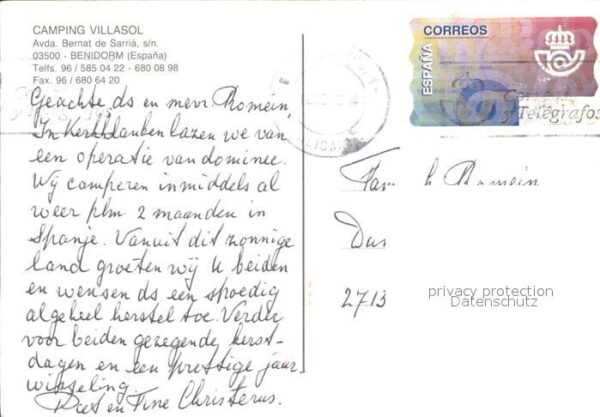 CAMPING VILLASOL
Avda. Bernat de Sarriá, s/n.
03500 - BENIDORM (España)
Telfs. 96 / 585 04 22 - 680 08 98
Fax. 96 / 680 64 20
Geachte ds en mevr Romein,
In Kerklauben lazen we van
een operatie van dominee.
Wij camperen inmiddels al
weer plm. 2 maanden in
Spanje. Vanuit dit zonnige
land groeten wij u beiden
en wensen ds een spoedig
algeheel herstel toe. Verder
voor beiden gezegende kerst-
dagen en een prettige jaar
wisseling
Piet en Tine Christerus.
ESPAÑA
CORREOS
Telégrafos
Fam. Romein
2713
privacy protection
Datenschutz